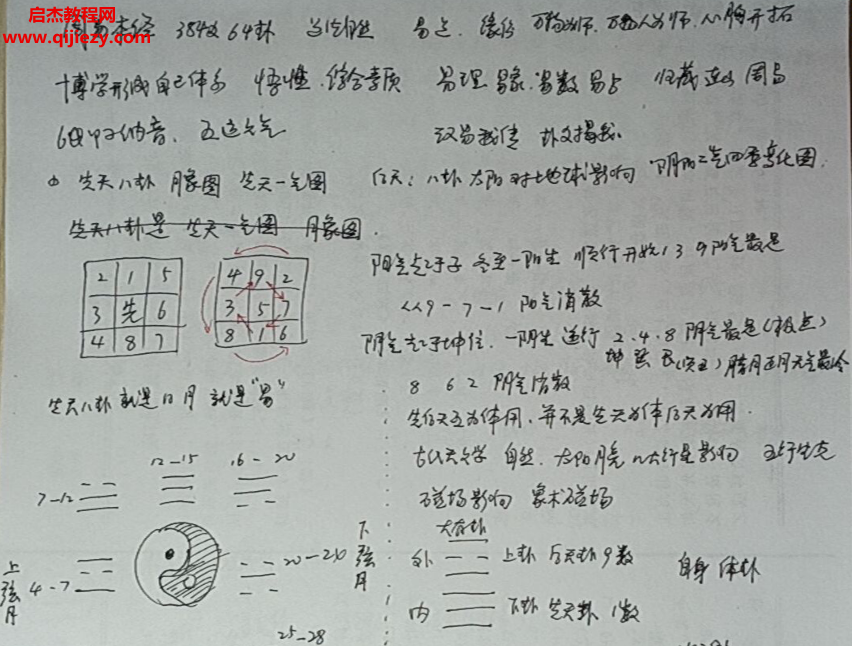 启杰教程网
www.qijiezy.com
周易本经 384爻 64卦 当位自然 易占、缘份 万物为师、万物人为师、心胸开拓
博学形成自己体系 悟性、综合素质 易理 易象、易数 易占 归藏 连山 周易
60甲子纳音、五运六气 汉易 卦爻
先天八卦 月象图 先天一气图 后天:八卦 太阳对地球影响 阴阳二气四季变化图.
先天八卦是 先天一气图 月象图.
阳气起于子 冬至一阳生 顺行开始 1 3 9 阳气最足
9-7-1 阳气消散
阴气起于坤位、一阴生 逆行 2、4、8 阴气最足(极点)
坤 巽 艮 腊月正月天气最冷
8 6 2 阴气消散
先后天互为体用、并不是先天为体后天为用.
古代天文学 自然、太阳月亮 八大行星影响 五行生克
磁场影响 象术磁场
2 1 5
3 先 6
4 8 7
4 9 2
3 5 7
8 1 6
先天八卦就是日月 就是"易"
7-12
12-15
16-20
上弦月
4-7
20-20
下弦月
25-28
大有卦
外 上卦 后天卦 9数
内 下卦 先天卦 1数
自身 体卦